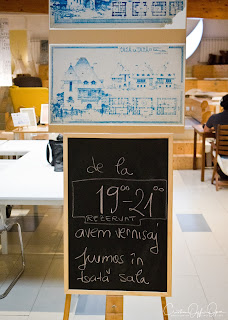 de la
19⁰⁰-21⁰⁰
REZERVAT
avem vernisaj
frumos în
toată sala